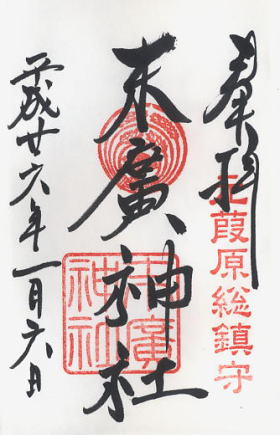 奉拝
元葭原総鎮守
末廣神社
末廣神社
平成廿六年一月六日